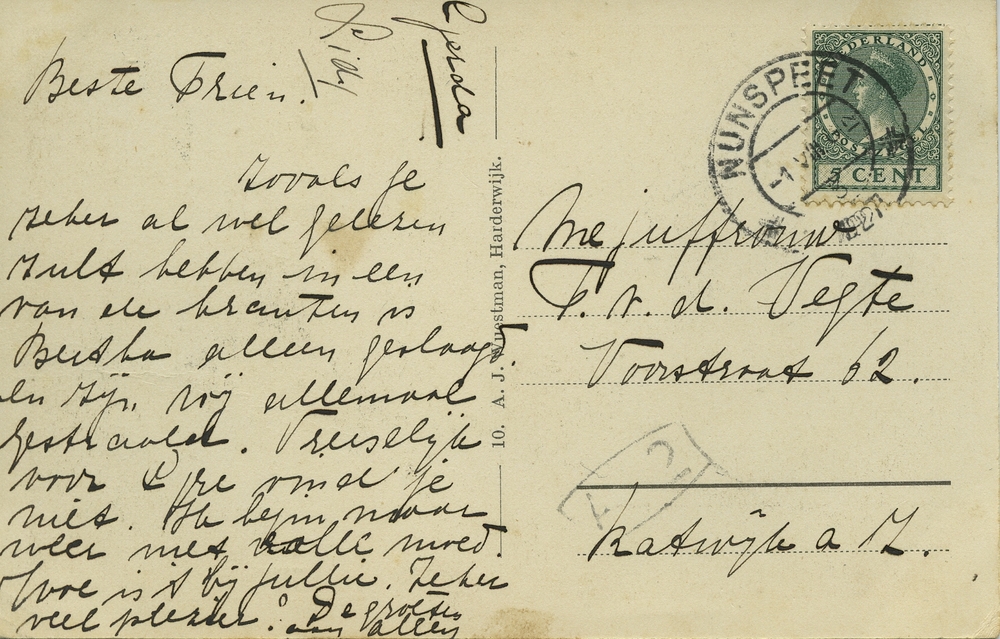 Beste Trien.
Zooals je
zeker al wel gelezen
zult hebben in een
van de kranten is
Bertha alleen geslaagd.
en zijn wij allemaal
gestraald. Vreeselijk
voor vind je
niet. Ik begin maar
weer met volle moed.
Hoe is 't bij jullie. Zeker
veel plezier? De groeten
aan allen
Gerda
10. A. J. Wuestman, Harderwijk.
NEDERLAND
POSTZEGEL
5 CENT
NUNSPEET
-1 VIII
1927
Mejuffrouw
T. v. d. Vegte
Voorstraat 62.
Katwijk a Z.
A 2